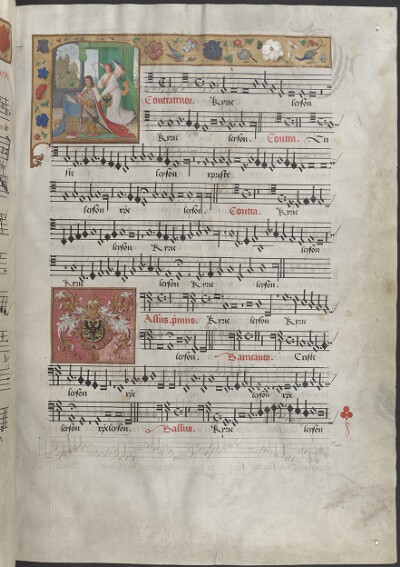 Contratenor. Kyrie leyson
Kyrie leyson. Contra.
ste leyson xpriste
leyson xpe leyson. Contra. Kyrie
leyson Kyrie leyson
Kyrie leyson Kyrie leyson.
Assus. pmus. Kyrie leyson Kyrie
leyson. Criste
leyson xpe leyson xpe
leyson xpeleyson. Bassus. Kyrie leyson